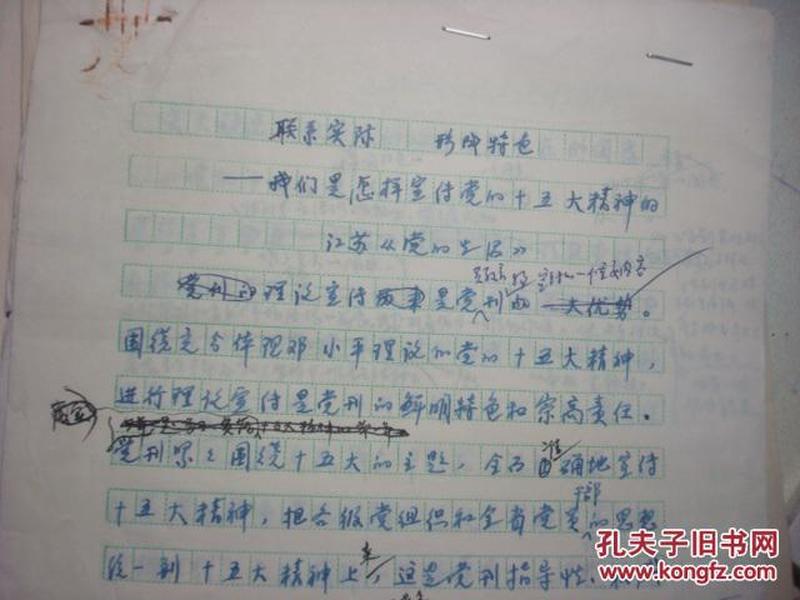 联系实际 形成特色
——我们是怎样宣传党的十五大精神的
江苏《党的生活》
党刊的理论宣传 是党刊的 一大优势。
围绕充分体现邓小平理论的党的十五大精神，
进行理论宣传是党刊的鲜明特色和崇高责任。
党刊紧紧围绕十五大的主题，全面准确地宣传
十五大精神，把各级党组织和全省党员干部的思想
统一到十五大精神上来，这是党刊指导性、
孔夫子旧书网
www.kongfz.com